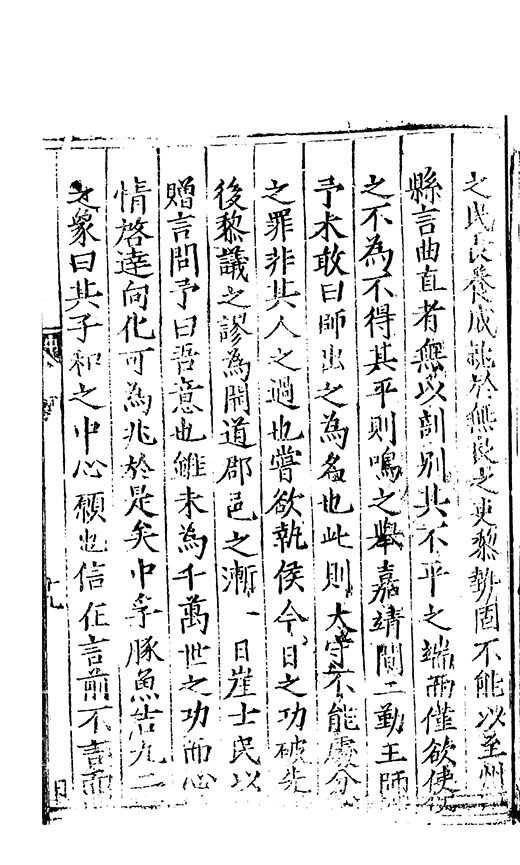 之民長養成就於無良之吏黎勢固不能以至州
縣言曲直者無以剖別其不平之端而僅欲使
之不為不得其平則鳴之舉嘉靖間二勤王師
予未敢曰師出之為名也此則大守不能處分
之罪非其人之過也嘗欲執侯今日之功破先
後黎議之謬為開道郡邑之漸一日崖士民以
贈言問予曰吾意也雖未為千萬世之功而心
情啓達向化可為兆於是矣中孚豚魚吉九二
之象曰其子和之中心願也信在言前不言而